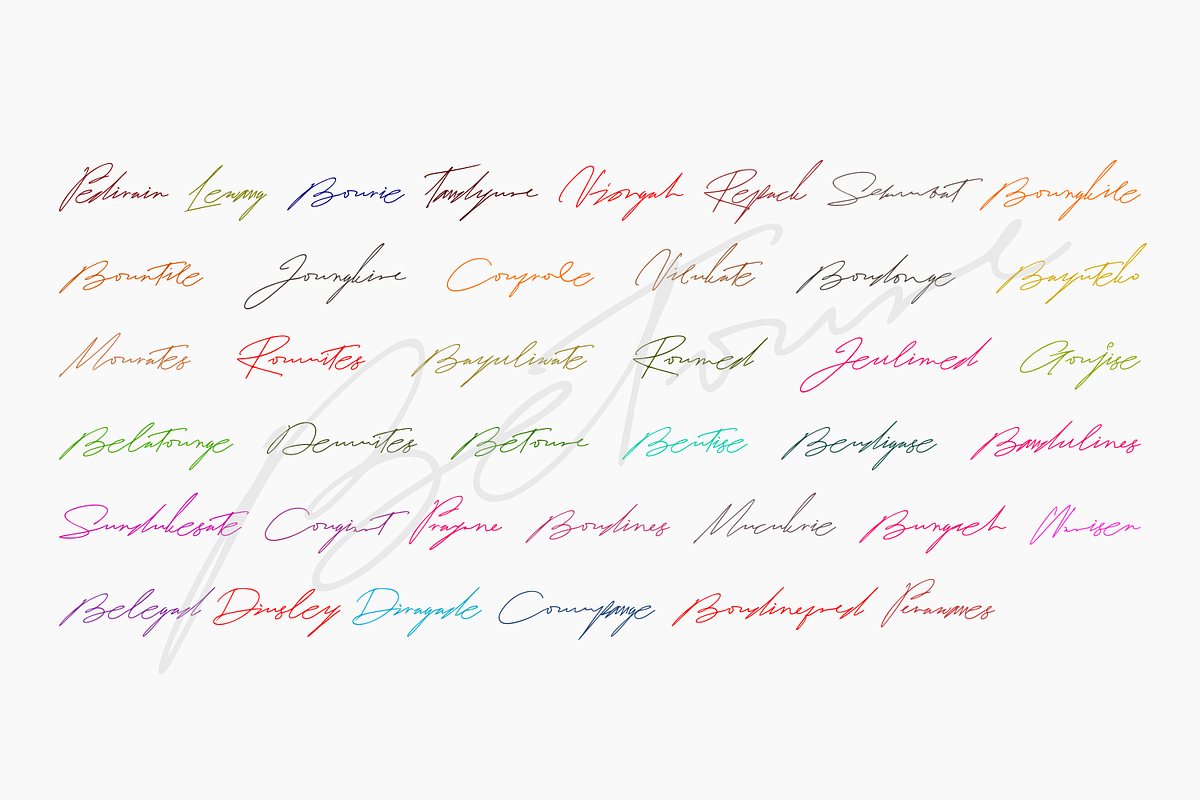 Pedirain Lewang Bourie Tandyune Viorgah Repack Sekumbat Boungkile
Bountile Joungkine Couprole Vilukate Boudonge Bayuteko
Mourates Roumites Bayuliwate Roumed Jeulimed Goujise
Belatounge Demmites Bétoune Beutise Bendigase Bandulines
Sundukesate Prayane Boudines Mucukrie Bungaeh
Belegad Dinsley Diragade Boudinefred
Bétoune